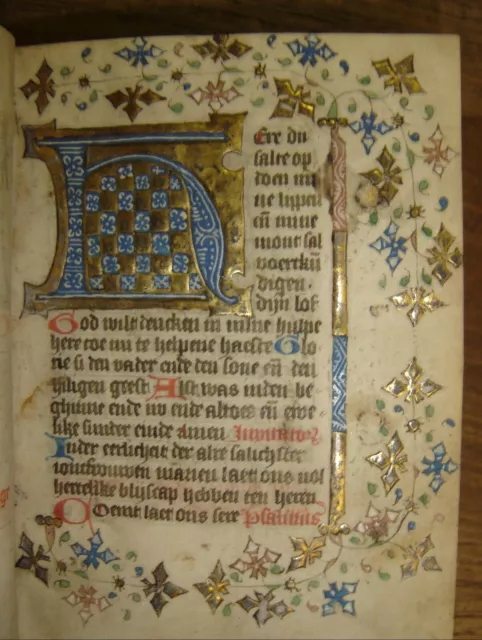 Ere du
salte op
doen mi
ne lippen
eñ mine
mont sal
voertkũ
digen
dijn lof
God wilt dencken in mine hulpe
here coe mi te helpene haeste Glo
rie si den vader ende den sone eñ den
hiligen geest Alst was inden be
ghinne ende nv ende altoes eñ ewe
like sinder ende amen
Inder eerlicheit der alre salichster
ioncfrouwen marien laet ons vol
herrelike blijscap hebben ten heren
Coemt laet ons seer Psalmus